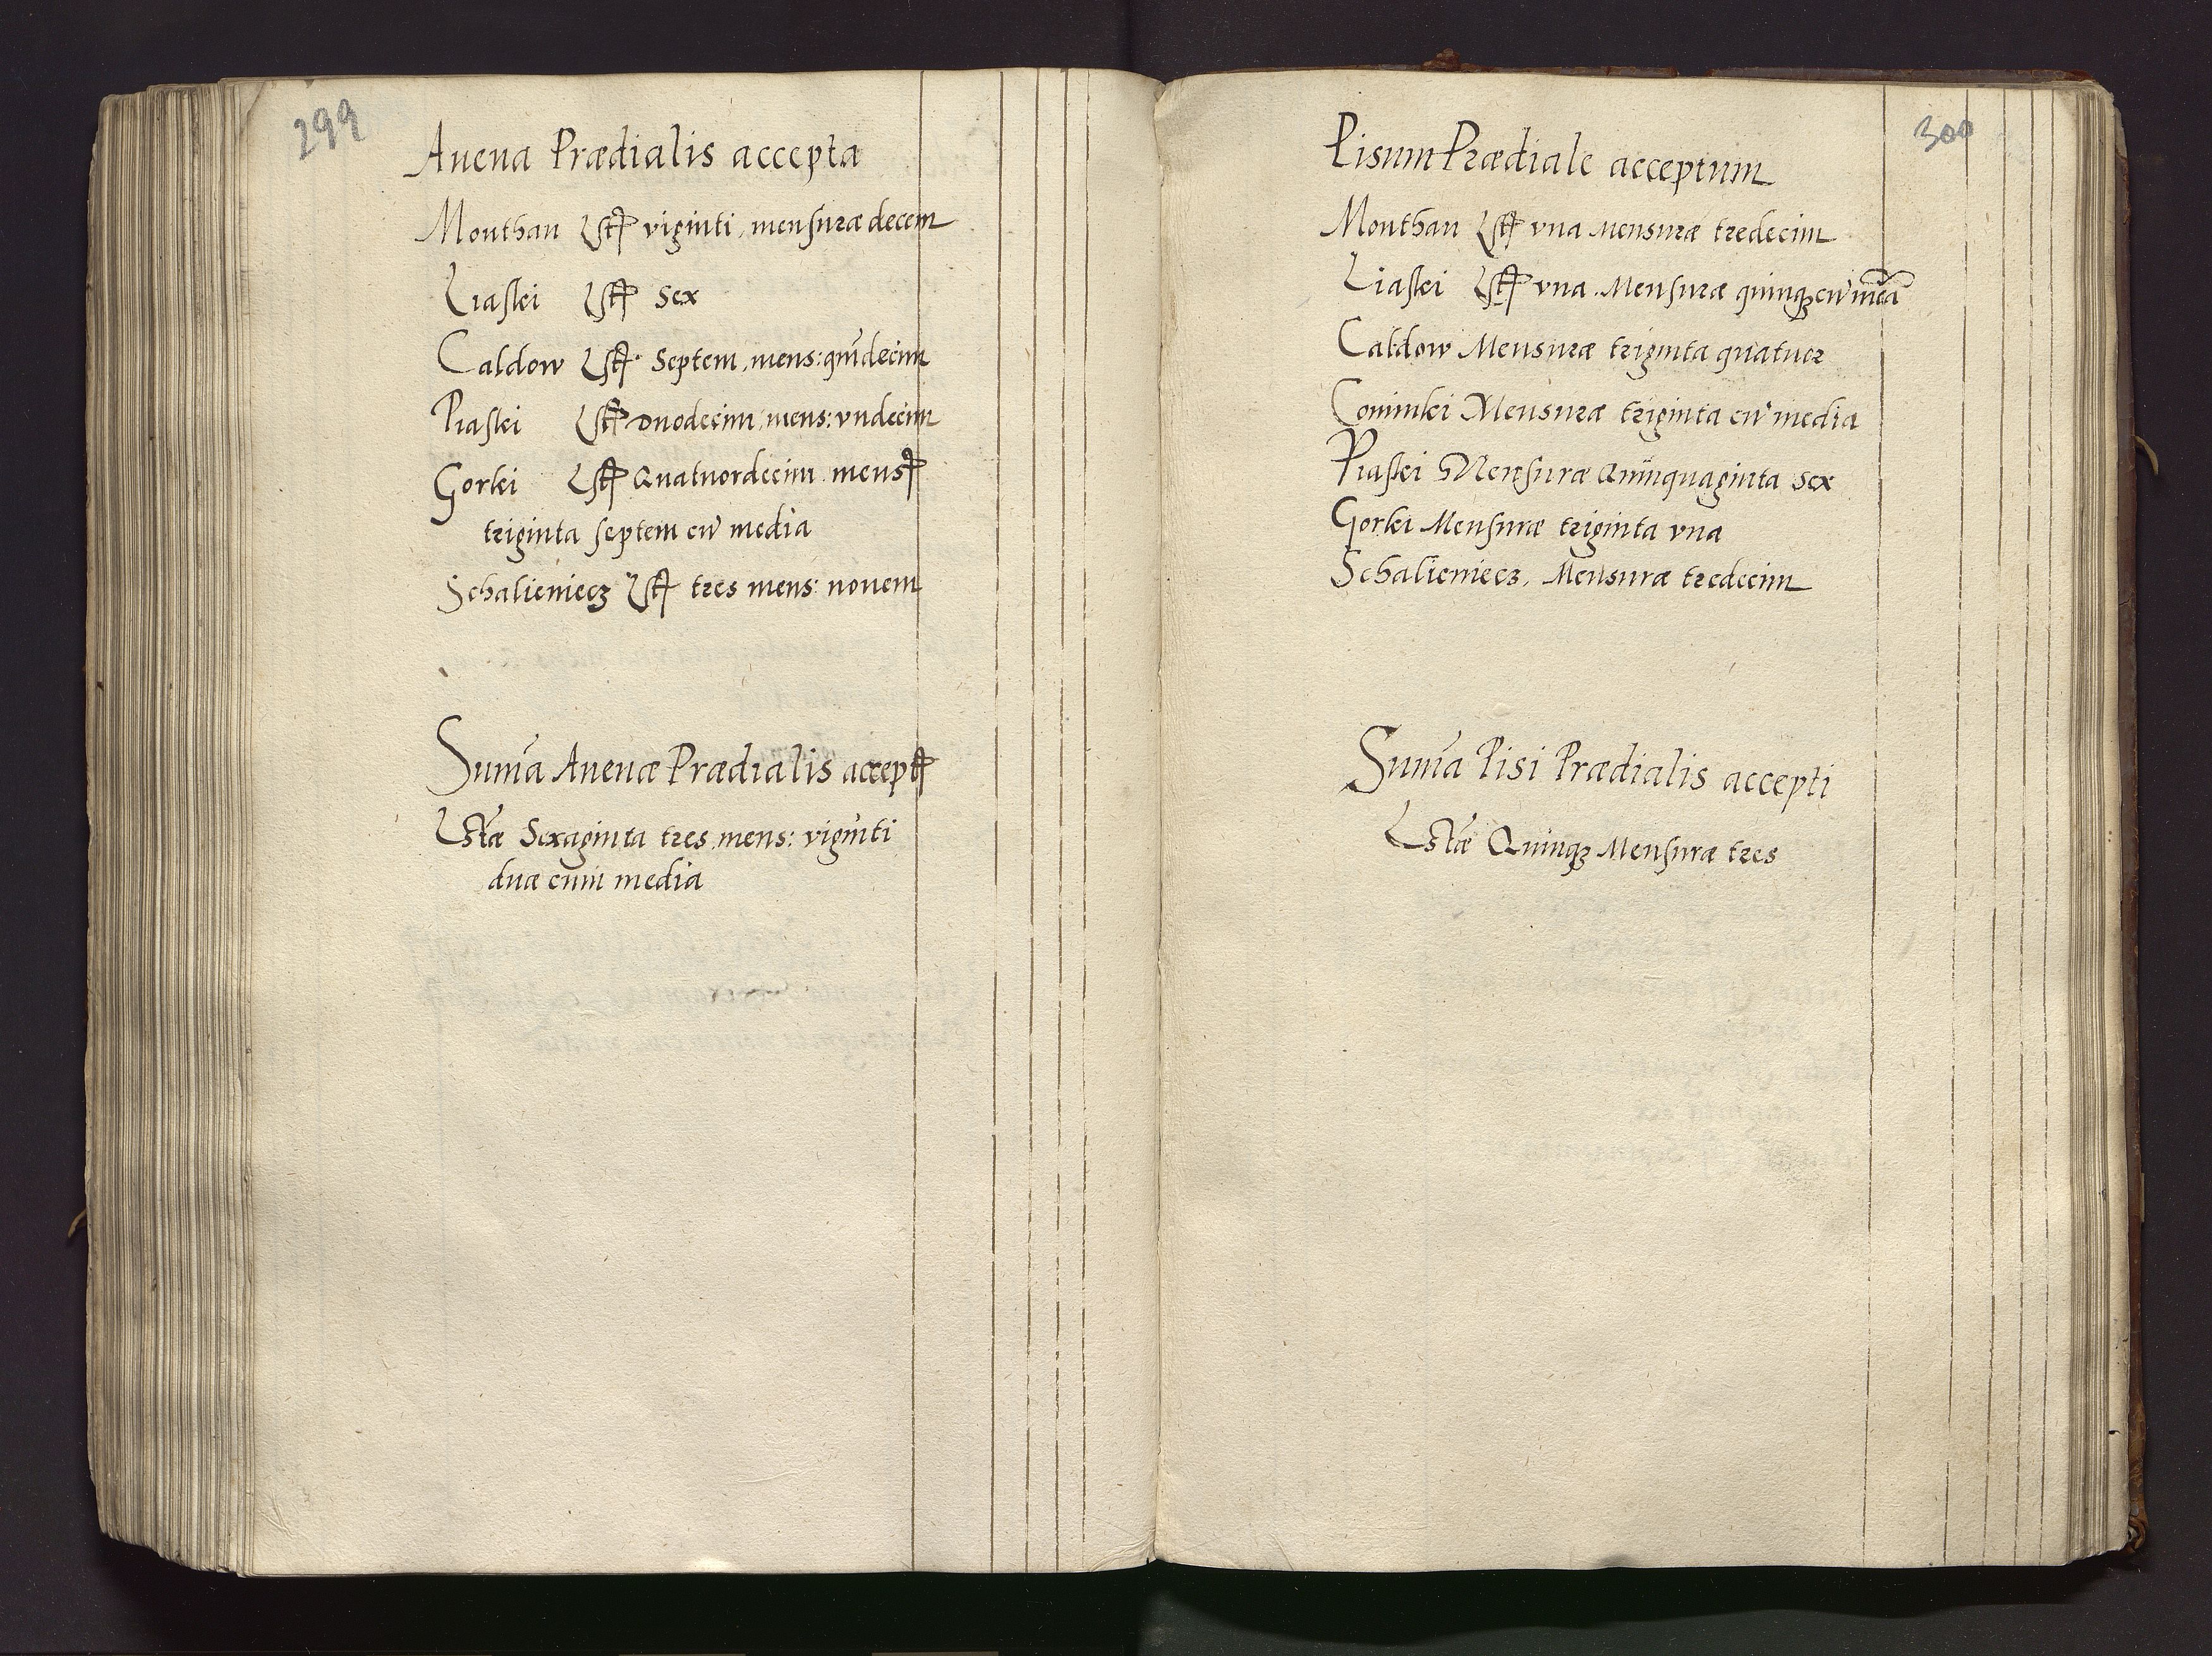 299
Auena Prædialis accepta
Monthau Lstf viginti, mensuræ decem
Liaskei Lstf Sex
Caldow Lstf Septem, mens: quīdecim
Piaskei Lstf Duodecim, mens: vndecim
Gorkei Lstf Quatuordecim mens
triginta septem cū media
Schalieniecz Lstf tres mens: nouem
Suma͞ Auenæ Prædialis accept
Lstæ Sexaginta tres mens: viginti
duæ cum media
300
Pisum Prædiale acceptum
Monthau Lstf vna Mensuræ tredecim
Liaskei Lstf vna Mensuræ quinqȝ cū media
Caldow Mensuræ triginta quatuor
Cominkei Mensuræ triginta cū media
Piaskei Mensuræ Quinquaginta Sex
Gorkei Mensuræ triginta vna
Schalieniecz, Mensuræ tredecim
Suma͞ Pisi Prædialis accepti
Lstæ Quinqȝ Mensuræ tres